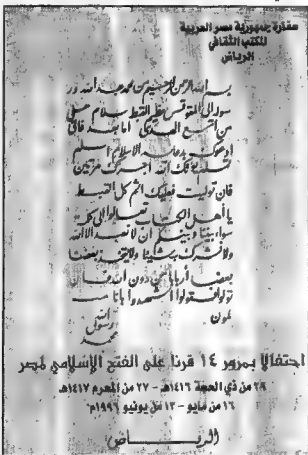 سفارة جمهورية مصر العربية
المكتب الثقافي
الرياض
بسم الله الرحمن الرحيم من محمد عبد الله ور
سوله إلى المقوقس عظيم القبط سلام على
من اتبع الهدى اما بعد فانى
ادعوك بدعاية الاسلام اسلم
تسلم يؤتك الله اجرك مرتين
فان توليت فعليك اثم كل القبط
يا اهل الكتاب تعالوا الى كلمة
سواء بيننا وبينكم ان لا نعبد الا الله
ولا نشرك به شيئا ولا يتخذ بعضنا
بعضا أربابا من دون الله فان
تولوا فقولوا اشهدوا بانا مسـ
لمون
الله
رسول
محمد
احتفالا بمرور ١٤ قرنا على الفتح الإسلامي لمصر
٢٩ من ذي الحجة ١٤١٦هـ - ٢٧ من المحرم ١٤١٧هـ
١٦ من مايو - ١٣ من يونيو ١٩٩٦م
(الريـــاض)